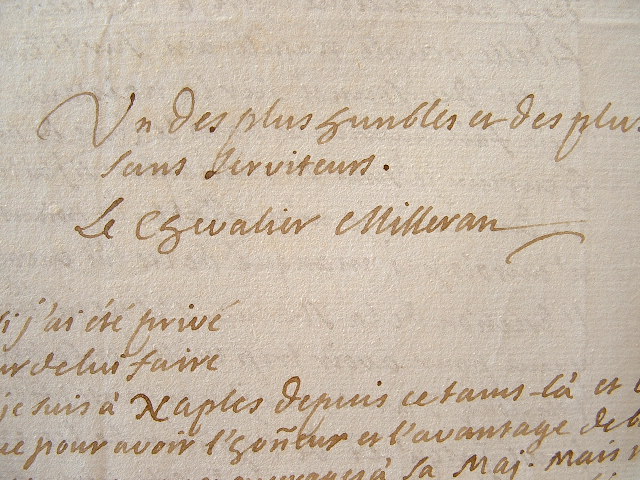 Un des plus humbles et des plus
sans Serviteurs.
Le Chevalier Milleran
si j'ai été privé
ur de lui faire
je suis à Naples depuis ce tams-là et
ué pour avoir l'hoñeur et l'avantage de
à sa Maj. Mais